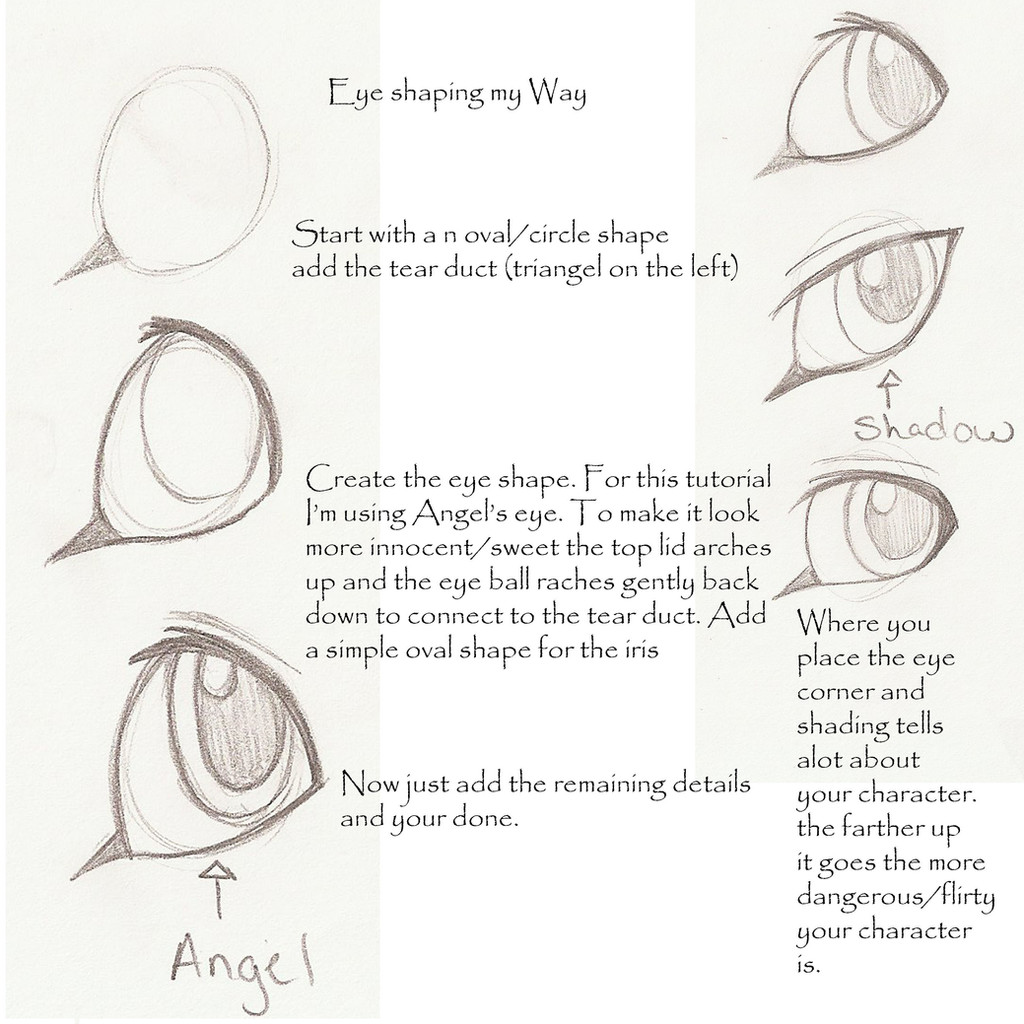 Eye shaping my Way
Start with a n oval/circle shape
add the tear duct (triangel on the left)
Create the eye shape. For this tutorial
I'm using Angel's eye. To make it look
more innocent/sweet the top lid arches
up and the eye ball raches gently back
down to connect to the tear duct. Add
a simple oval shape for the iris
Now just add the remaining details
and your done.
Angel
Shadow
Where you
place the eye
corner and
shading tells
alot about
your character.
the farther up
it goes the more
dangerous/flirty
your character
is.